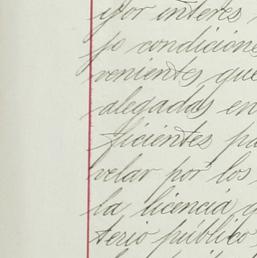 y por interes
jo condicione
venientes que
alegadas en
ficientes pa
velar por los
la licencia q
terio público